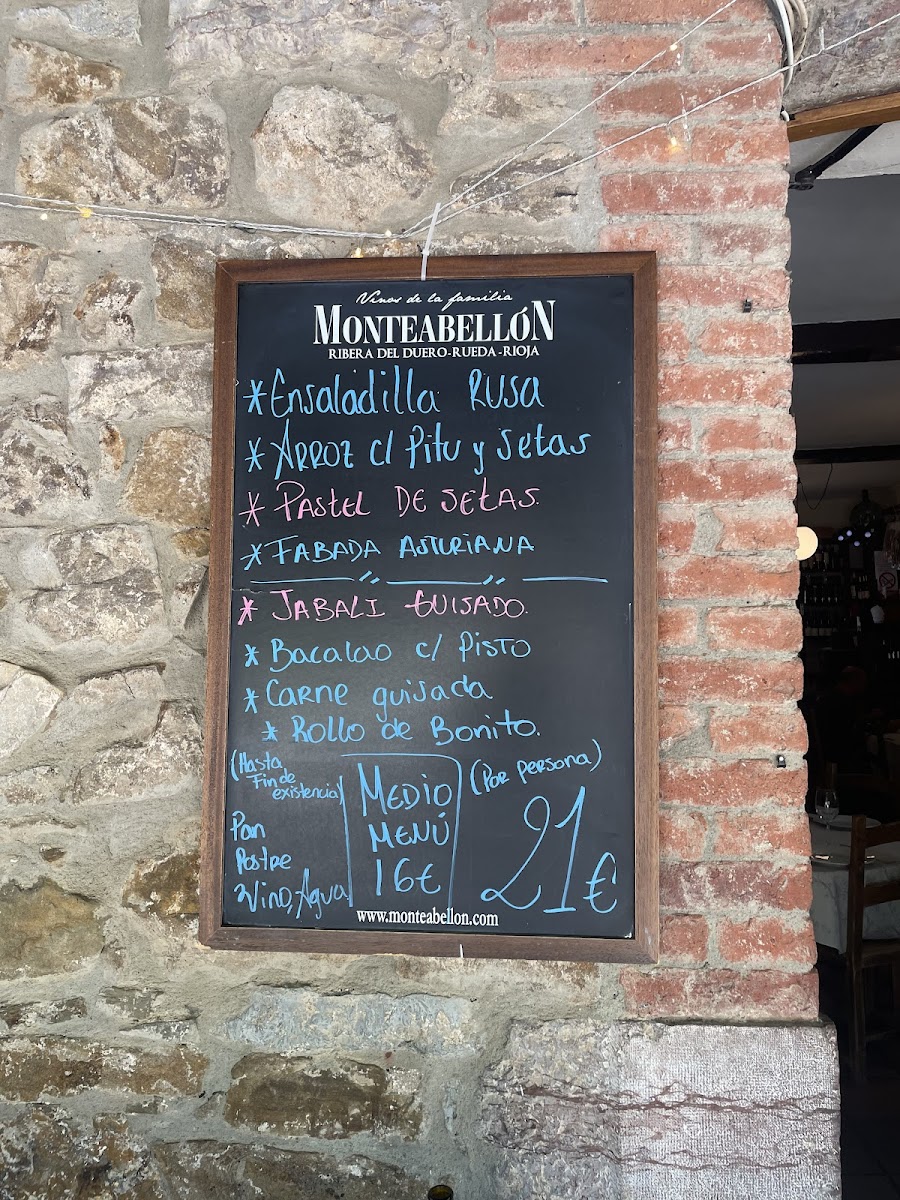 Vinos de la familia
MONTEABELLÓN
RIBERA DEL DUERO-RUEDA-RIOJA
*Ensaladilla RUSA
*ARROZ c/ Pitu y setas
*PASTEL DE SETAS.
*FABADA ASTURIANA
*JABALI GUISADO.
*Bacalao c/ PISTO
*CARNE guisada
*ROLLO de Bonito.
(Hasta
Fin de
existencia)
Pan
Postre
Vino, Agua
MEDIO
MENÚ
16€
(Por persona)
21€
www.monteabellon.com